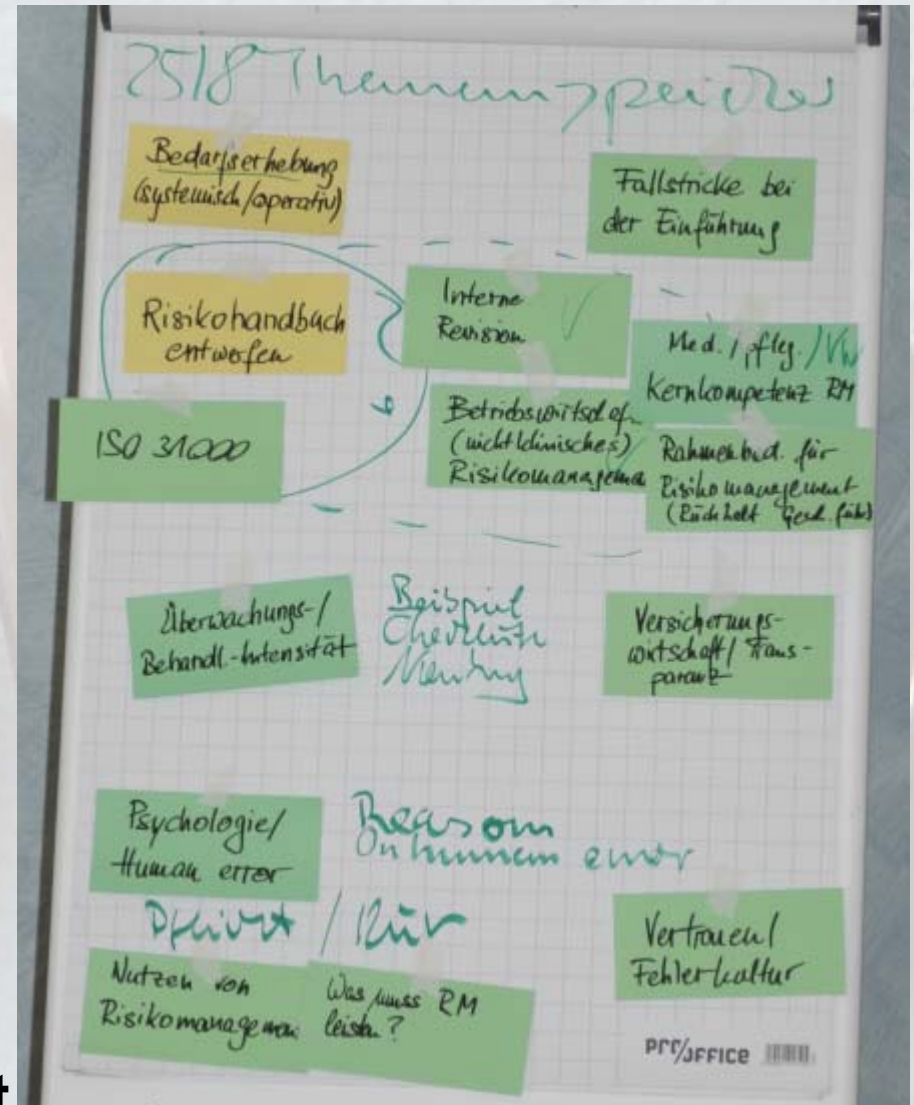 25/8 Themenspeicher
Bedarfserhebung
(systemisch/operativ)
Fallstricke bei
der Einführung
Risikohandbuch
entwerfen
Interne
Revision
Med./pfleg./VW
Kernkompetenz RM
ISO 31000
Betriebswirtschaf
(nicht klinisches)
Risikomanageme
Rahmenbed. für
Risikomanagement
(Rückhalt Gesch.führ)
Überwachungs-/
Behandl.-Intensität
Beispiel
Checkliste
Versicherungs-
wirtschaft/Trans-
parenz
Psychologie/
Human error
Reason
On human error
Pflicht / Kür
Vertrauen/
Fehlerkultur
Nutzen von
Risikomanagemen
Was muss RM
leisten?
Pro/office
t